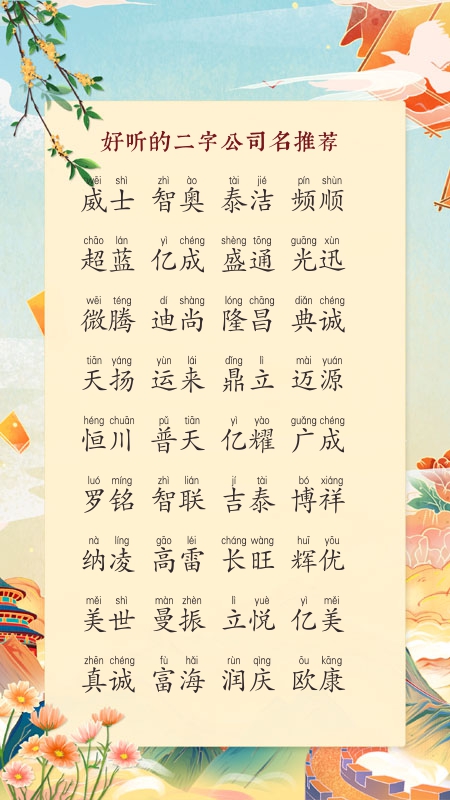 好听的二字公司名推荐
wēi shì zhì ào tài jié pín shùn
威士 智奥 泰洁 频顺
chāo lán yì chéng shèng tōng guāng xùn
超蓝 亿成 盛通 光迅
wēi téng dí shàng lóng chāng diǎn chéng
微腾 迪尚 隆昌 典诚
tiān yáng yùn lái dǐng lì mài yuán
天扬 运来 鼎立 迈源
héng chuān pǔ tiān yì yào guǎng chéng
恒川 普天 亿耀 广成
luó míng zhì lián jí tài bó xiáng
罗铭 智联 吉泰 博祥
nà líng gāo léi cháng wàng huī yōu
纳凌 高雷 长旺 辉优
měi shì màn zhèn lì yuè yì měi
美世 曼振 立悦 亿美
zhēn chéng fù hǎi rùn qìng ōu kāng
真诚 富海 润庆 欧康